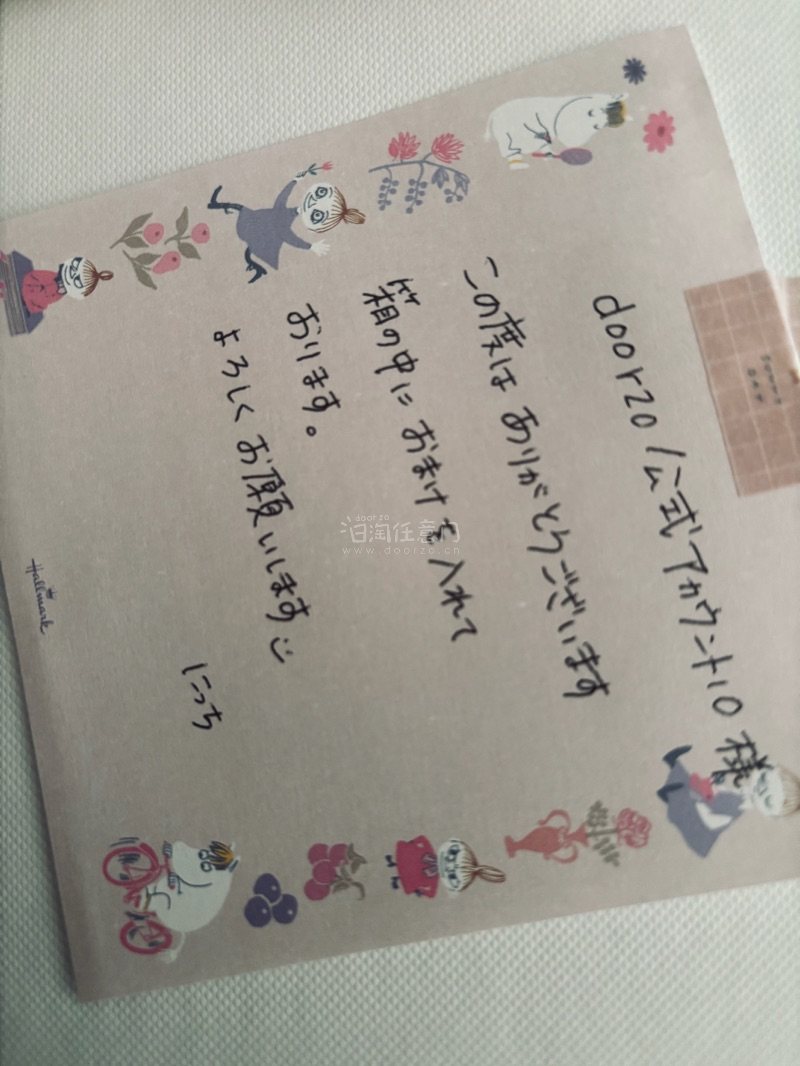 doorzo/公式アカウント10 様
この度は ありがとうございます
箱の中に おまけを入れて
おります。
よろしくお願いします
にっち
Hallmark
doorzo
日淘任意门
www.doorzo.cn